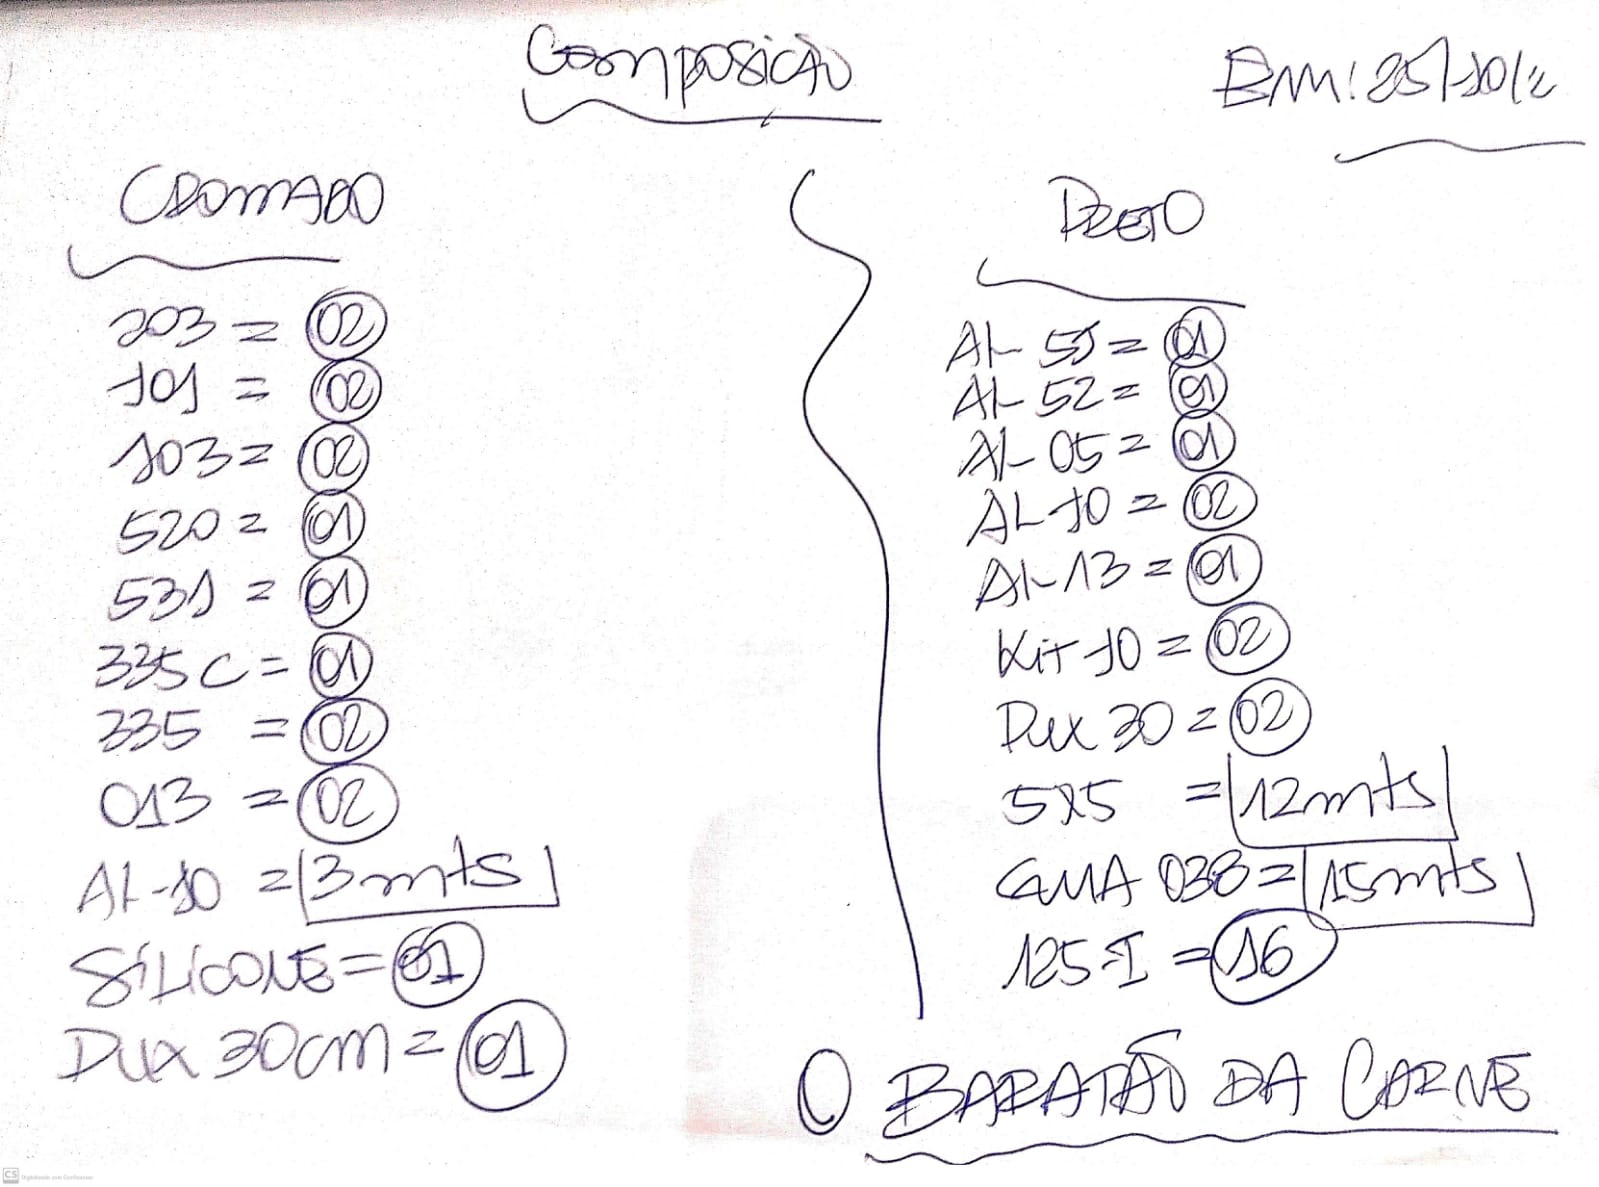 Composição
Em: 25/10/2
CROMADO
203 = 02
101 = 02
103 = 02
520 = 01
531 = 01
335 C = 01
335 = 02
013 = 02
AL-10 = 3 mts
SILICONE = 01
Dux 30cm = 01
PRETO
AL-51 = 01
AL-52 = 01
AL-05 = 01
AL-10 = 02
AL-13 = 01
Kit 10 = 02
Dux 30 = 02
5x5 = 12 mts
GUIA 038 = 15 mts
125-I = 16
O BARATÃO DA CARNE
CS Digitalizado com CamScanner